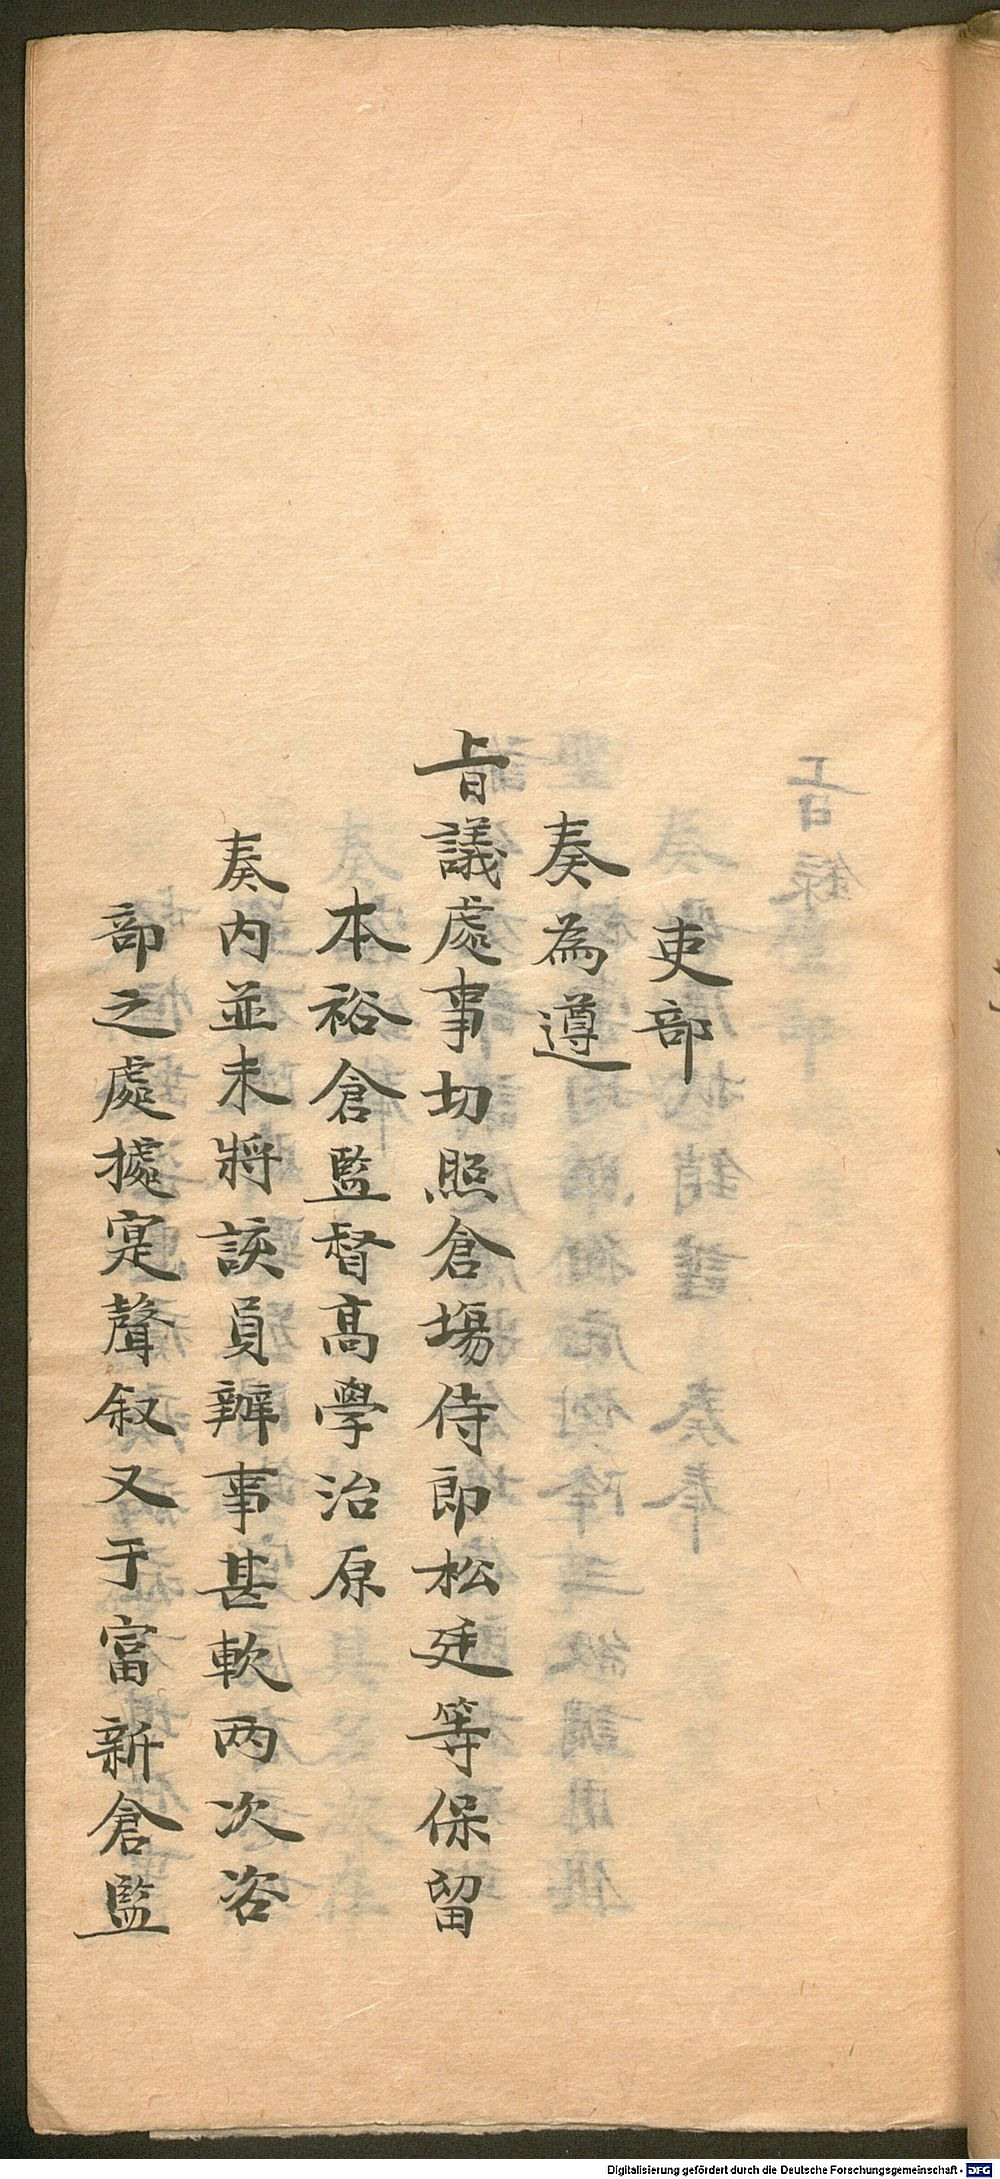 吏部
奏為遵
旨議處事切照倉場侍郎松廷等保留
本裕倉監督高學治原
奏內並未將該員辦事甚軟两次咨
部之處據寔聲叙又于富新倉監
Digitalisierung gefördert durch die Deutsche Forschungsgemeinschaft - DFG